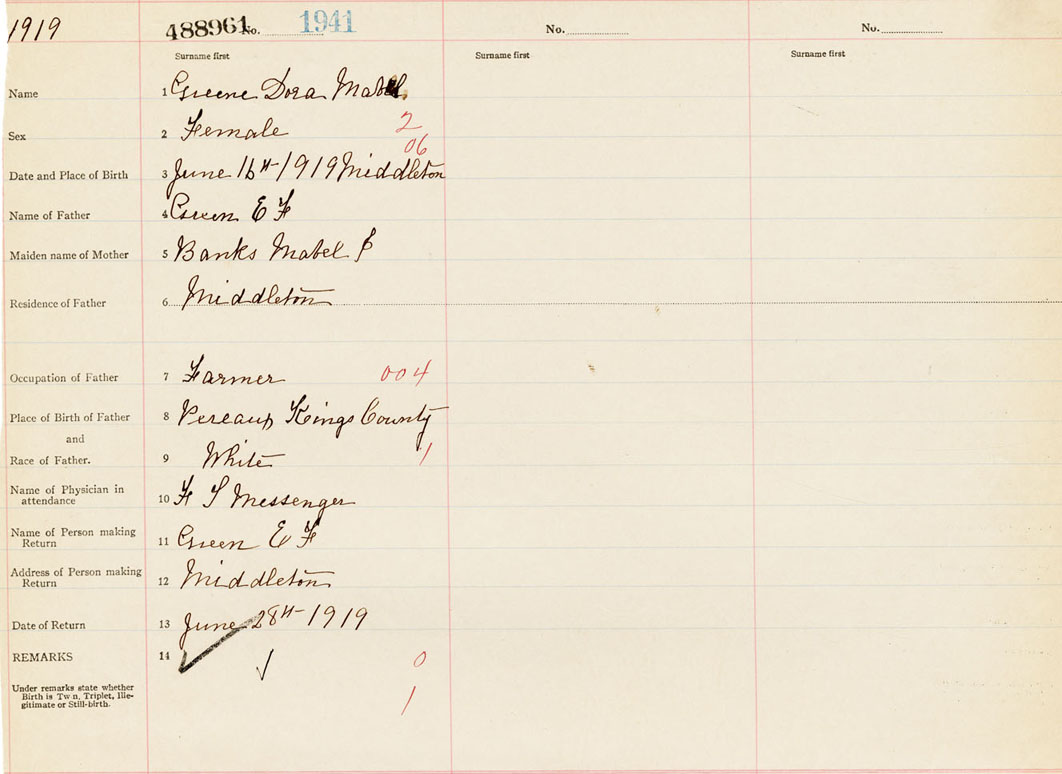 1919 488961 No. 1941 No. No.
Surname first Surname first Surname first
Name 1 Greene Dora Mabel
Sex 2 Female 2
06
Date and Place of Birth 3 June 16th 1919 Middleton
Name of Father 4 Green E F
Maiden name of Mother 5 Banks Mabel
Residence of Father 6 Middleton
Occupation of Father 7 Farmer 004
Place of Birth of Father 8 Pereaux Kings County
and
Race of Father. 9 White 1
Name of Physician in
attendance 10 F S Messenger
Name of Person making
Return 11 Green E F
Address of Person making
Return 12 Middleton
Date of Return 13 June 28th 1919
REMARKS 14 0
Under remarks state whether
Birth is Twin, Triplet, Ille-
gitimate or Still-birth. 1